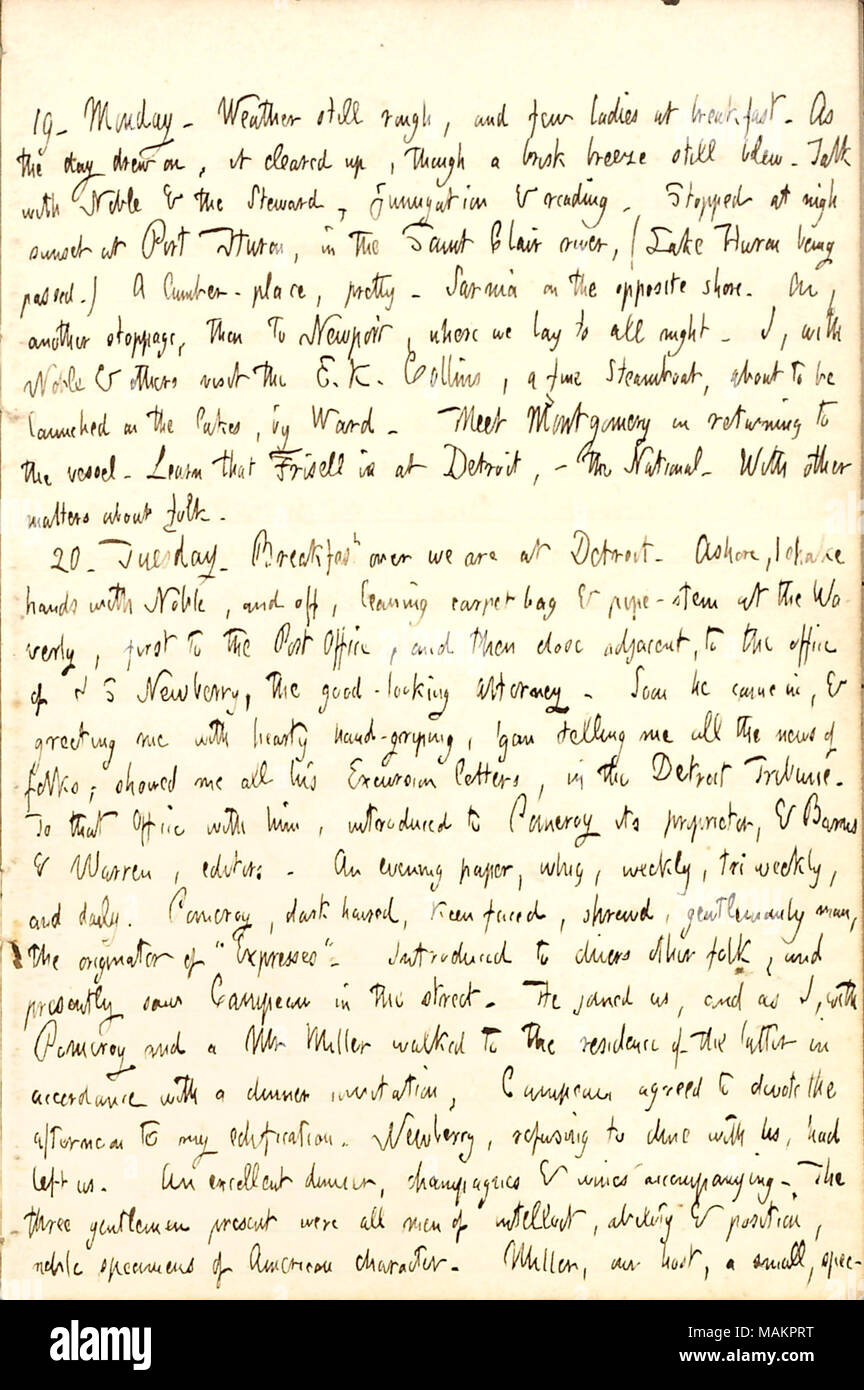 19_ Monday_ Weather still rough, and few ladies at breakfast. As
the day drew on, it cleared up, though a brisk breeze still blew. Talk
with Noble & the Steward, fumigation & reading. Stopped at nigh
sunset at Port Huron, in the Saint Clair river, (Lake Huron being
passed.) A lumber-place, pretty. Sarnia on the opposite shore. On,
another stoppage, then to Newport, where we lay to all night. I, with
Noble & others visit the E. K. Collins, a fine Steamboat, about to be
launched on the lakes, by Ward. Meet Montgomery on returning to
the vessel. Learn that Frisell is at Detroit, - the National. With other
matters about folk.
20_ Tuesday_ Breakfast over we are at Detroit. Ashore, shake
hands with Noble, and off, leaving carpet bag & pipe-stem at the Wa-
verly, first to the Post Office, and then close adjacent, to the office
of J S Newberry, the good-looking attorney. Soon he came in, &
greeting me with hearty hand-griping, 'gan telling me all the news of
folks; showed me all his Excursion letters, in the Detroit Tribune.
To that Office with him, introduced to Pomeroy its proprietor, & Barns
& Warren, editors. An evening paper, whig, weekly, tri weekly,
and daily. Pomeroy, dark haired, keen faced, shrewd, gentlemanly man,
the originator of "Expresses". Introduced to divers other folk, and
presently saw Campeau in the street. He joined us, and as I, with
Pomeroy and a Mr Miller walked to the residence of the latter in
accordance with a dinner invitation, Campeau agreed to devote the
afternoon to my edification. Newberry, refusing to dine with us, had
left us. An excellent dinner, champagnes & wines accompanying. The
three gentlemen present were all men of intellect, ability & position,
noble specimens of American character. Miller, our host, a small, spec-
alamy
Image ID: MAKPRT
www.alamy.com